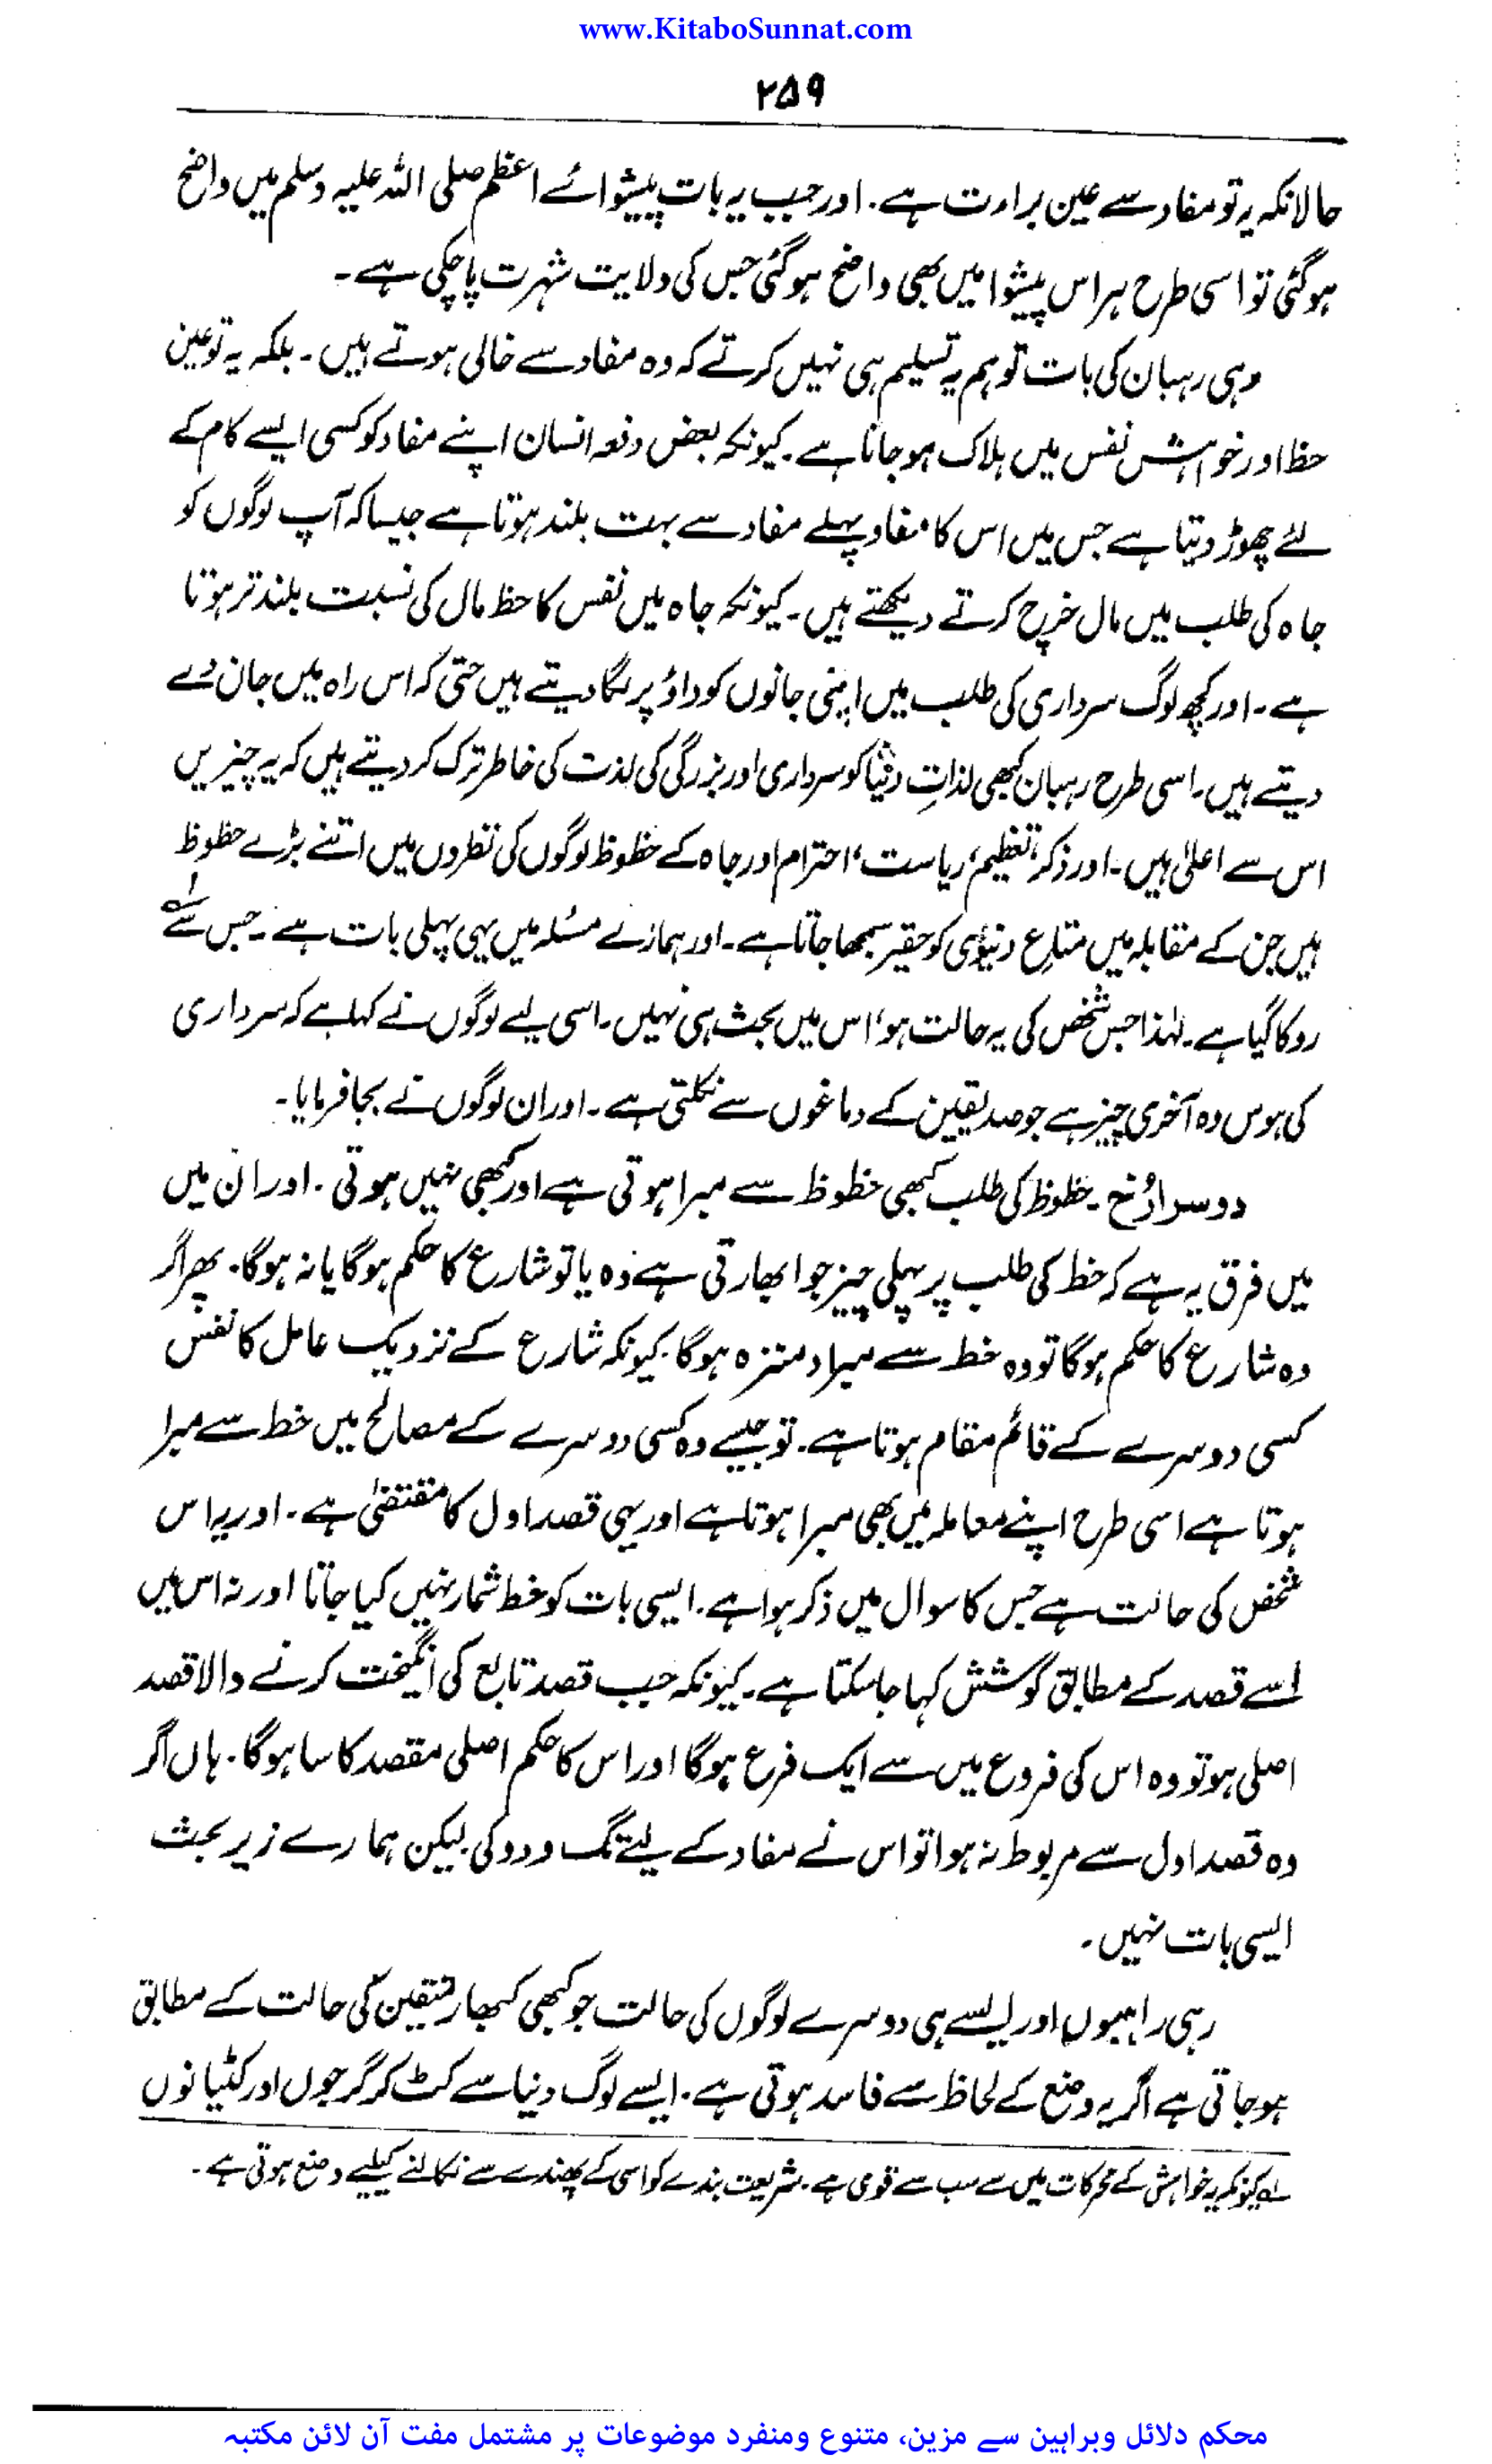 www.KitaboSunnat.com
۲۵۹
حالانکہ یہ تو مفاد سے عین براءت ہے۔ اور جب یہ بات پیشوائے اعظم صلی اللہ علیہ وسلم میں واضح
ہو گئی تو اسی طرح ہر اس پیشوا میں بھی واضح ہو گئی جس کی ولایت شہرت پا چکی ہے۔
رہی رہبان کی بات تو ہم یہ تسلیم ہی نہیں کرتے کہ وہ مفاد سے خالی ہوتے ہیں۔ بلکہ یہ تو عین
حظ اور خواہش نفس میں ہلاک ہو جانا ہے۔ کیونکہ بعض دفعہ انسان اپنے مفاد کو کسی ایسے کام کے
لئے چھوڑ دیتا ہے جس میں اس کا مفاد پہلے مفاد سے بہت بلند ہوتا ہے جیسا کہ آپ لوگوں کو
جاہ کی طلب میں مال خرچ کرتے دیکھتے ہیں۔ کیونکہ جاہ میں نفس کا حظ مال کی نسبت بلند تر ہوتا
ہے۔ اور کچھ لوگ سرداری کی طلب میں اپنی جانوں کو داؤ پر لگا دیتے ہیں حتی کہ اس راہ میں جان دے
دیتے ہیں۔ اسی طرح رہبان کبھی لذاتِ دنیا کو سرداری اور بزرگی کی لذت کی خاطر ترک کر دیتے ہیں کہ یہ چیزیں
اس سے اعلیٰ ہیں۔ اور ذکر، تعظیم، ریاست، احترام اور جاہ کے حظوظ لوگوں کی نظروں میں اتنے بڑے حظوظ
ہیں جن کے مقابلہ میں متاعِ دنیوی کو حقیر سمجھا جاتا ہے۔ اور ہمارے مسئلہ میں یہی پہلی بات ہے۔ جس سے ؎۱
روکا گیا ہے۔ لہٰذا جس شخص کی یہ حالت ہو، اس میں بحث ہی نہیں۔ اسی لیے لوگوں نے کہا ہے کہ سرداری
کی ہوس وہ آخری چیز ہے جو صدیقین کے دماغوں سے نکلتی ہے۔ اور ان لوگوں نے بجا فرمایا۔
دوسرا رُخ۔ حظوظ کی طلب کبھی حظوظ سے مبرا ہوتی ہے اور کبھی نہیں ہوتی۔ اور ان میں
میں فرق یہ ہے کہ حظ کی طلب پر پہلی چیز جو ابھارتی ہے وہ یا تو شارع کا حکم ہوگا یا نہ ہوگا۔ پھر اگر
وہ شارع کا حکم ہوگا تو وہ حظ سے مبرا و منزہ ہوگا۔ کیونکہ شارع کے نزدیک عامل کا نفس
کسی دوسرے کے قائم مقام ہوتا ہے۔ تو جیسے وہ کسی دوسرے کے مصالح میں حظ سے مبرا
ہوتا ہے اسی طرح اپنے معاملہ میں بھی مبرا ہوتا ہے اور یہی قصد اول کا مقتضیٰ ہے۔ اور یہ اس
شخص کی حالت ہے جس کا سوال میں ذکر ہوا ہے۔ ایسی بات کو حظ شمار نہیں کیا جاتا اور نہ اس میں
اسے قصد کے مطابق کوشش کہا جا سکتا ہے۔ کیونکہ جب قصد تابع کی انگیخت کرنے والا قصد
اصلی ہو تو وہ اس کی فروع میں سے ایک فرع ہوگا اور اس کا حکم اصلی مقصد کا سا ہوگا۔ ہاں اگر
وہ قصد اول سے مربوط نہ ہوا تو اس نے مفاد کے لیے تگ و دو کی۔ لیکن ہمارے زیر بحث
ایسی بات نہیں۔
رہی راہبوں اور ایسے ہی دوسرے لوگوں کی حالت جو کبھی کبھار متقین کی حالت کے مطابق
ہو جاتی ہے اگر یہ وضع کے لحاظ سے فاسد ہوتی ہے۔ ایسے لوگ دنیا سے کٹ کر گرجوں اور کٹیانوں
؎۱ کیونکہ یہ خواہش کے محرکات میں سے سب سے قوی ہے۔ شریعت بندے کو اسی کے پھندے سے نکالنے کیلیے وضع ہوتی ہے۔
محکم دلائل وبراہین سے مزین، متنوع ومنفرد موضوعات پر مشتمل مفت آن لائن مکتبہ